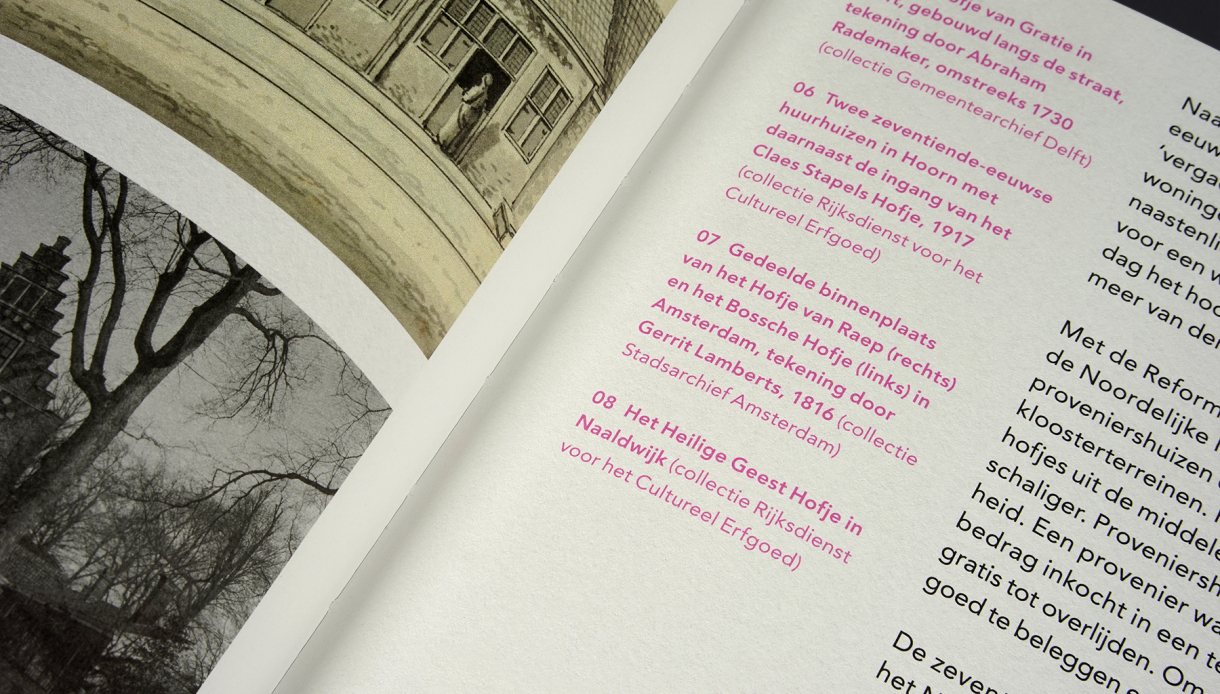 van Gratie in
gebouwd langs de straat,
tekening door Abraham
Rademaker, omstreeks 1730
(collectie Gemeentearchief Delft)
06 Twee zeventiende-eeuwse
huurhuizen in Hoorn met
daarnaast de ingang van het
Claes Stapels Hofje, 1917
(collectie Rijksdienst voor het
Cultureel Erfgoed)
07 Gedeelde binnenplaats
van het Hofje van Raep (rechts)
en het Bossche Hofje (links) in
Amsterdam, tekening door
Gerrit Lamberts, 1816 (collectie
Stadsarchief Amsterdam)
08 Het Heilige Geest Hofje in
Naaldwijk (collectie Rijksdienst
voor het Cultureel Erfgoed)
Naa
eeuw
'verga
woning
naastenli
voor een w
dag het hoo
meer van der
Met de Reform
de Noordelijke
proveniershuizen
kloosterterreinen.
hofjes uit de middele
schaliger. Proveniersh
heid. Een provenier wa
bedrag inkocht in een te
gratis tot overlijden. Om
goed te beleggen
De zeven
het N